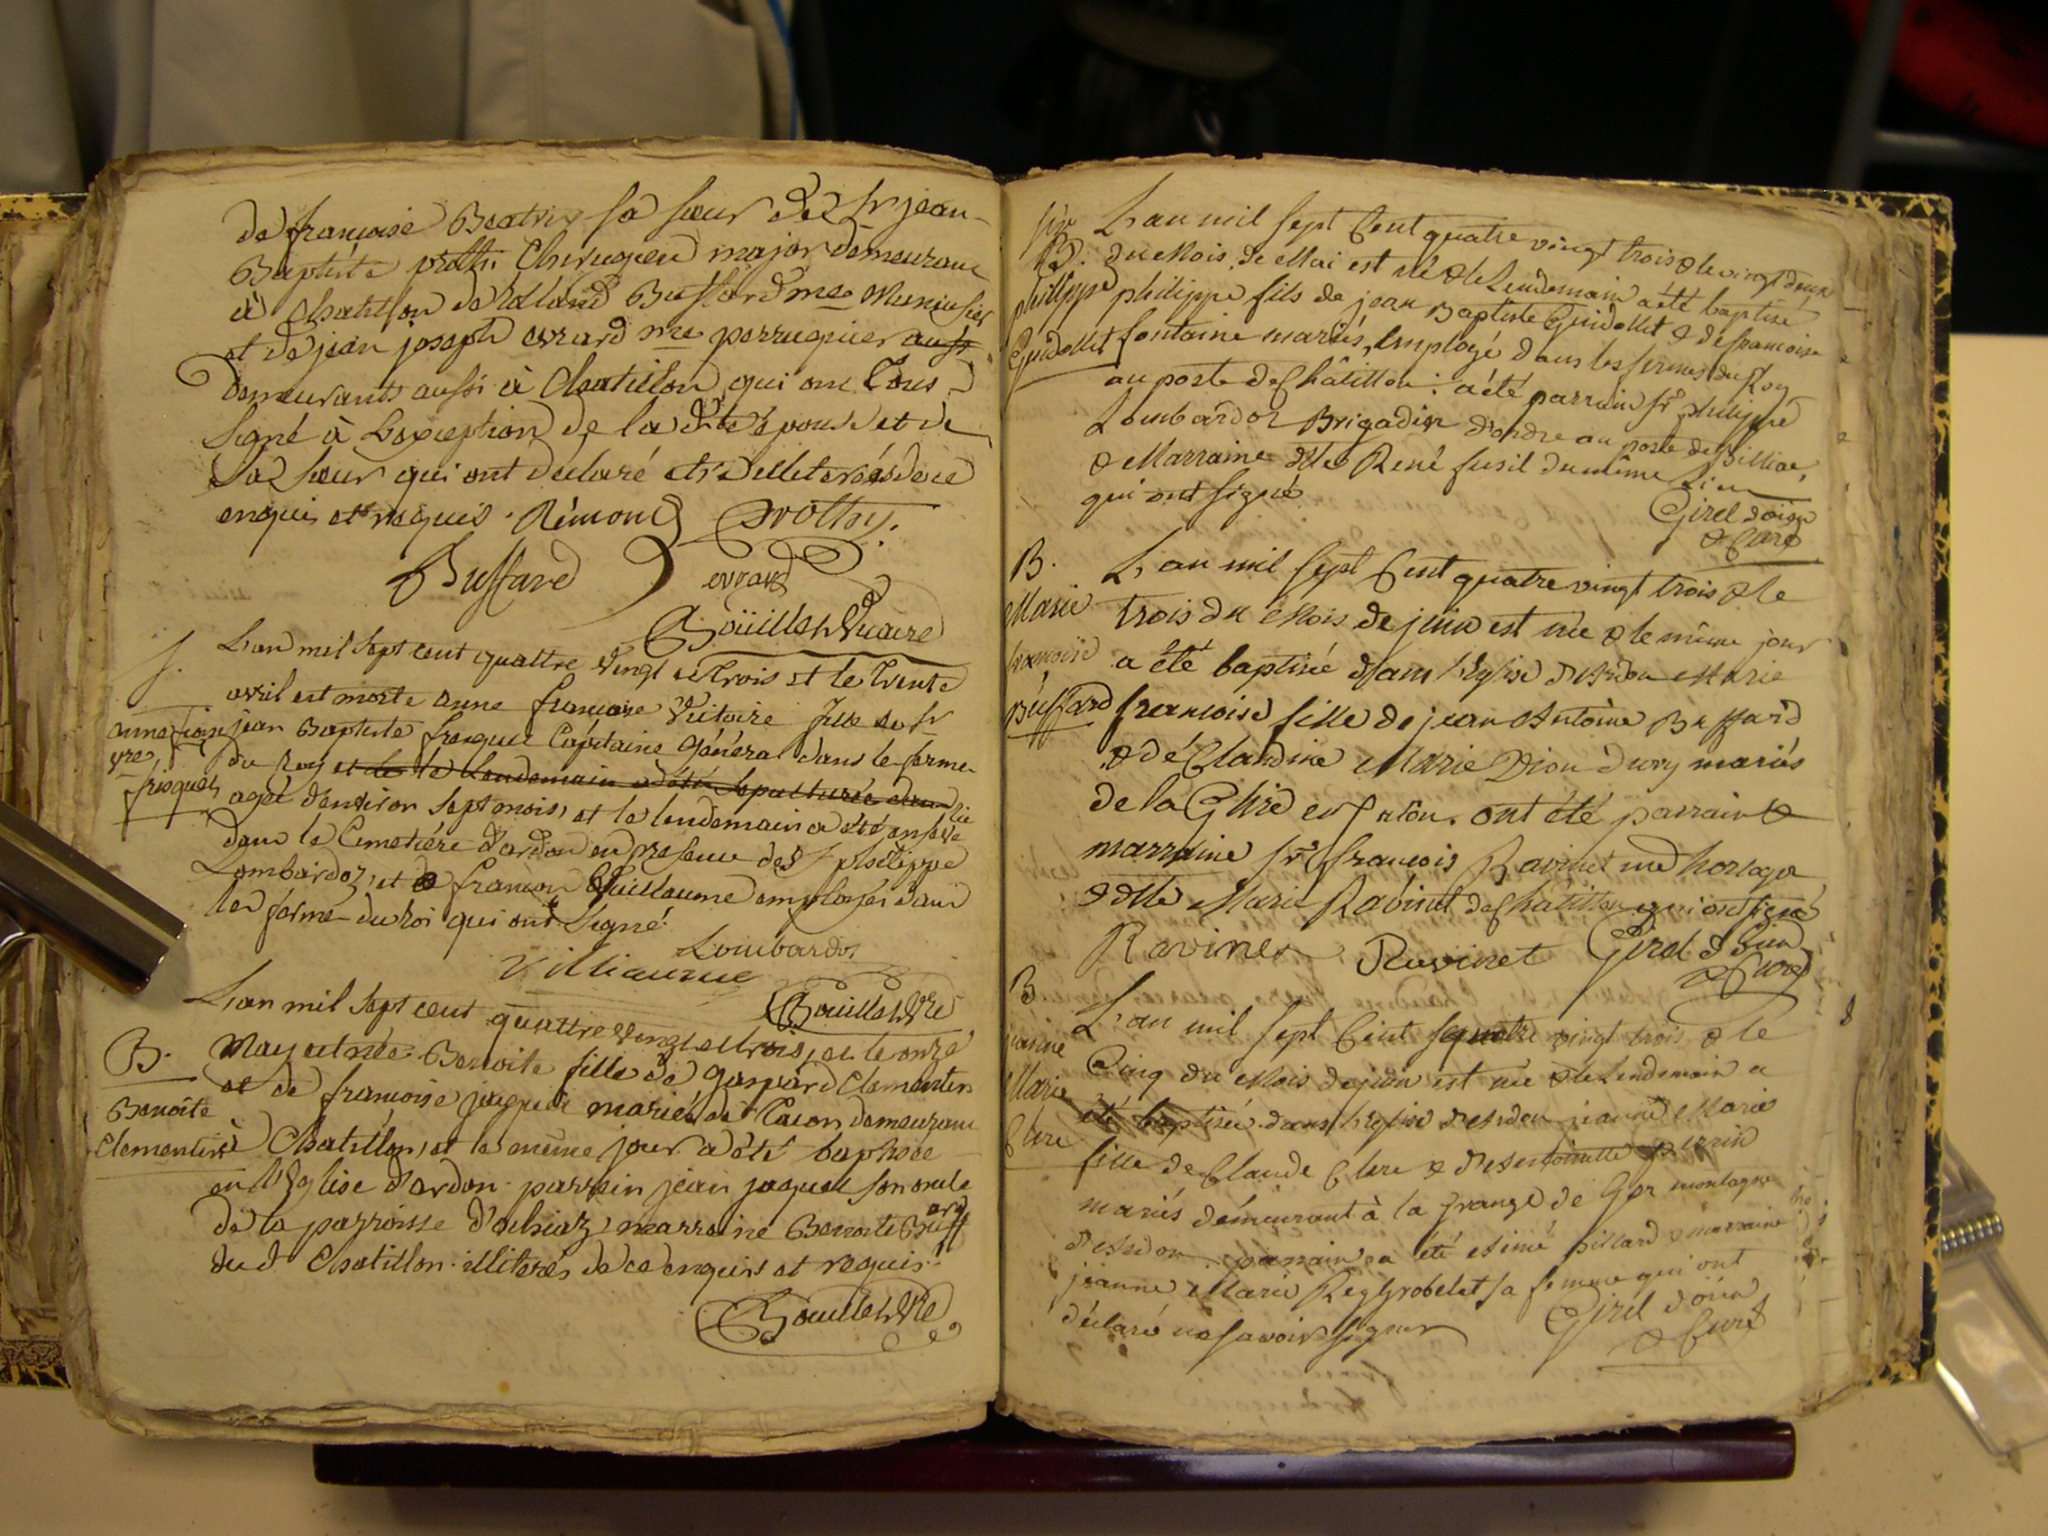 de francoise Beatrix sa sœur de Sr jean
Baptiste prothi Chirugien major demeurant
à Chatillon de Buffard me Menusier
et de jean joseph evrard me perruquier aussi
demeurants aussi à Chatillon qui ont Tous
Signé à Lexception de la dite épouse et de
Sa sœur qui ont déclaré etre illeterés de ce
enquis et requis. Rémond Prothy.
Buffard evrard
Boüillet Vicaire
S.
L'an mil Sept cent quattre vingt et trois et le trente
avril est morte anne francoise Victoire fille de Sr
jean Baptiste fresquet Capitaine Général dans les ferme
du Roy et le Lendemain a été sepulturée dans
agée d'environ Sept mois, et le lendemain a été enseve
lie
dans le Cemetière d'ardon en presence de Sr philippe
Lombardoz, et de francon Guillaume employés dans
les fermé du Roi qui ont Signé.
Lombardoz
Villiaume
Bouillet Vre
B.
Benoite
Clementin
L'an mil Sept cent quattre vingt et trois, et le onze
May est née Benoite fille de Gaspard Clementin
et de francoise jaquet mariés de Tacon demeurant
à Chatillon, et le même jour a été baptisée
en l'Eglise d'ardon. parrain jean jaquet son oncle
de la parroisse d'ochiaz, marraine Benoite Buff
ard
du d Chatillon. illiterés de ce enquis et requis.
Bouillet Vre
B.
philippe
Guidollet
L'an mil Sept Cent quatre vingt trois & le vingt deux
du Mois de Mai est né & le Lendemain a été baptisé
philippe fils de jean Baptiste Guidollet & de francoise
fontaine mariés, Employé dans les fermes du Roy
au poste de Châtillon: a été parrain Sr philippe
Lombardoz Brigadier d'ordre au poste de Billiat,
& Marraine dlle René fusil du même Lieu
qui ont signé
Girel doien
& Curé
B.
Marie
francoise
Buffard
L'an mil Sept Cent quatre vingt trois & le
trois du Mois de juin est née & le même jour
a été baptisée dans l'Eglise d'Ardon Marie
francoise fille de jean Antoine Buffard
& de Claudine Marie mariés
de la ont été parrain &
marraine Sr francois Ravinet md horloge
& dlle Marie Ravinet de Châtillon qui ont signé
Ravinet Ravinet Girel doien
& Curé
B
jeanne
Marie
Clere
L'an mil Sept Cent quatre vingt trois & le
Cinq du Mois de juin est née & le Lendemain a
été baptisée dans l'Eglise d'Ardon jeanne Marie
fille de Claude Clere & d'Antoinette perrin
mariés démeurant à la Grange de montagne
d'Ardon. parrain a été Aimé billard & marraine
jeanne Marie sa femme qui ont
déclaré ne savoir signer
Girel doien
& Curé